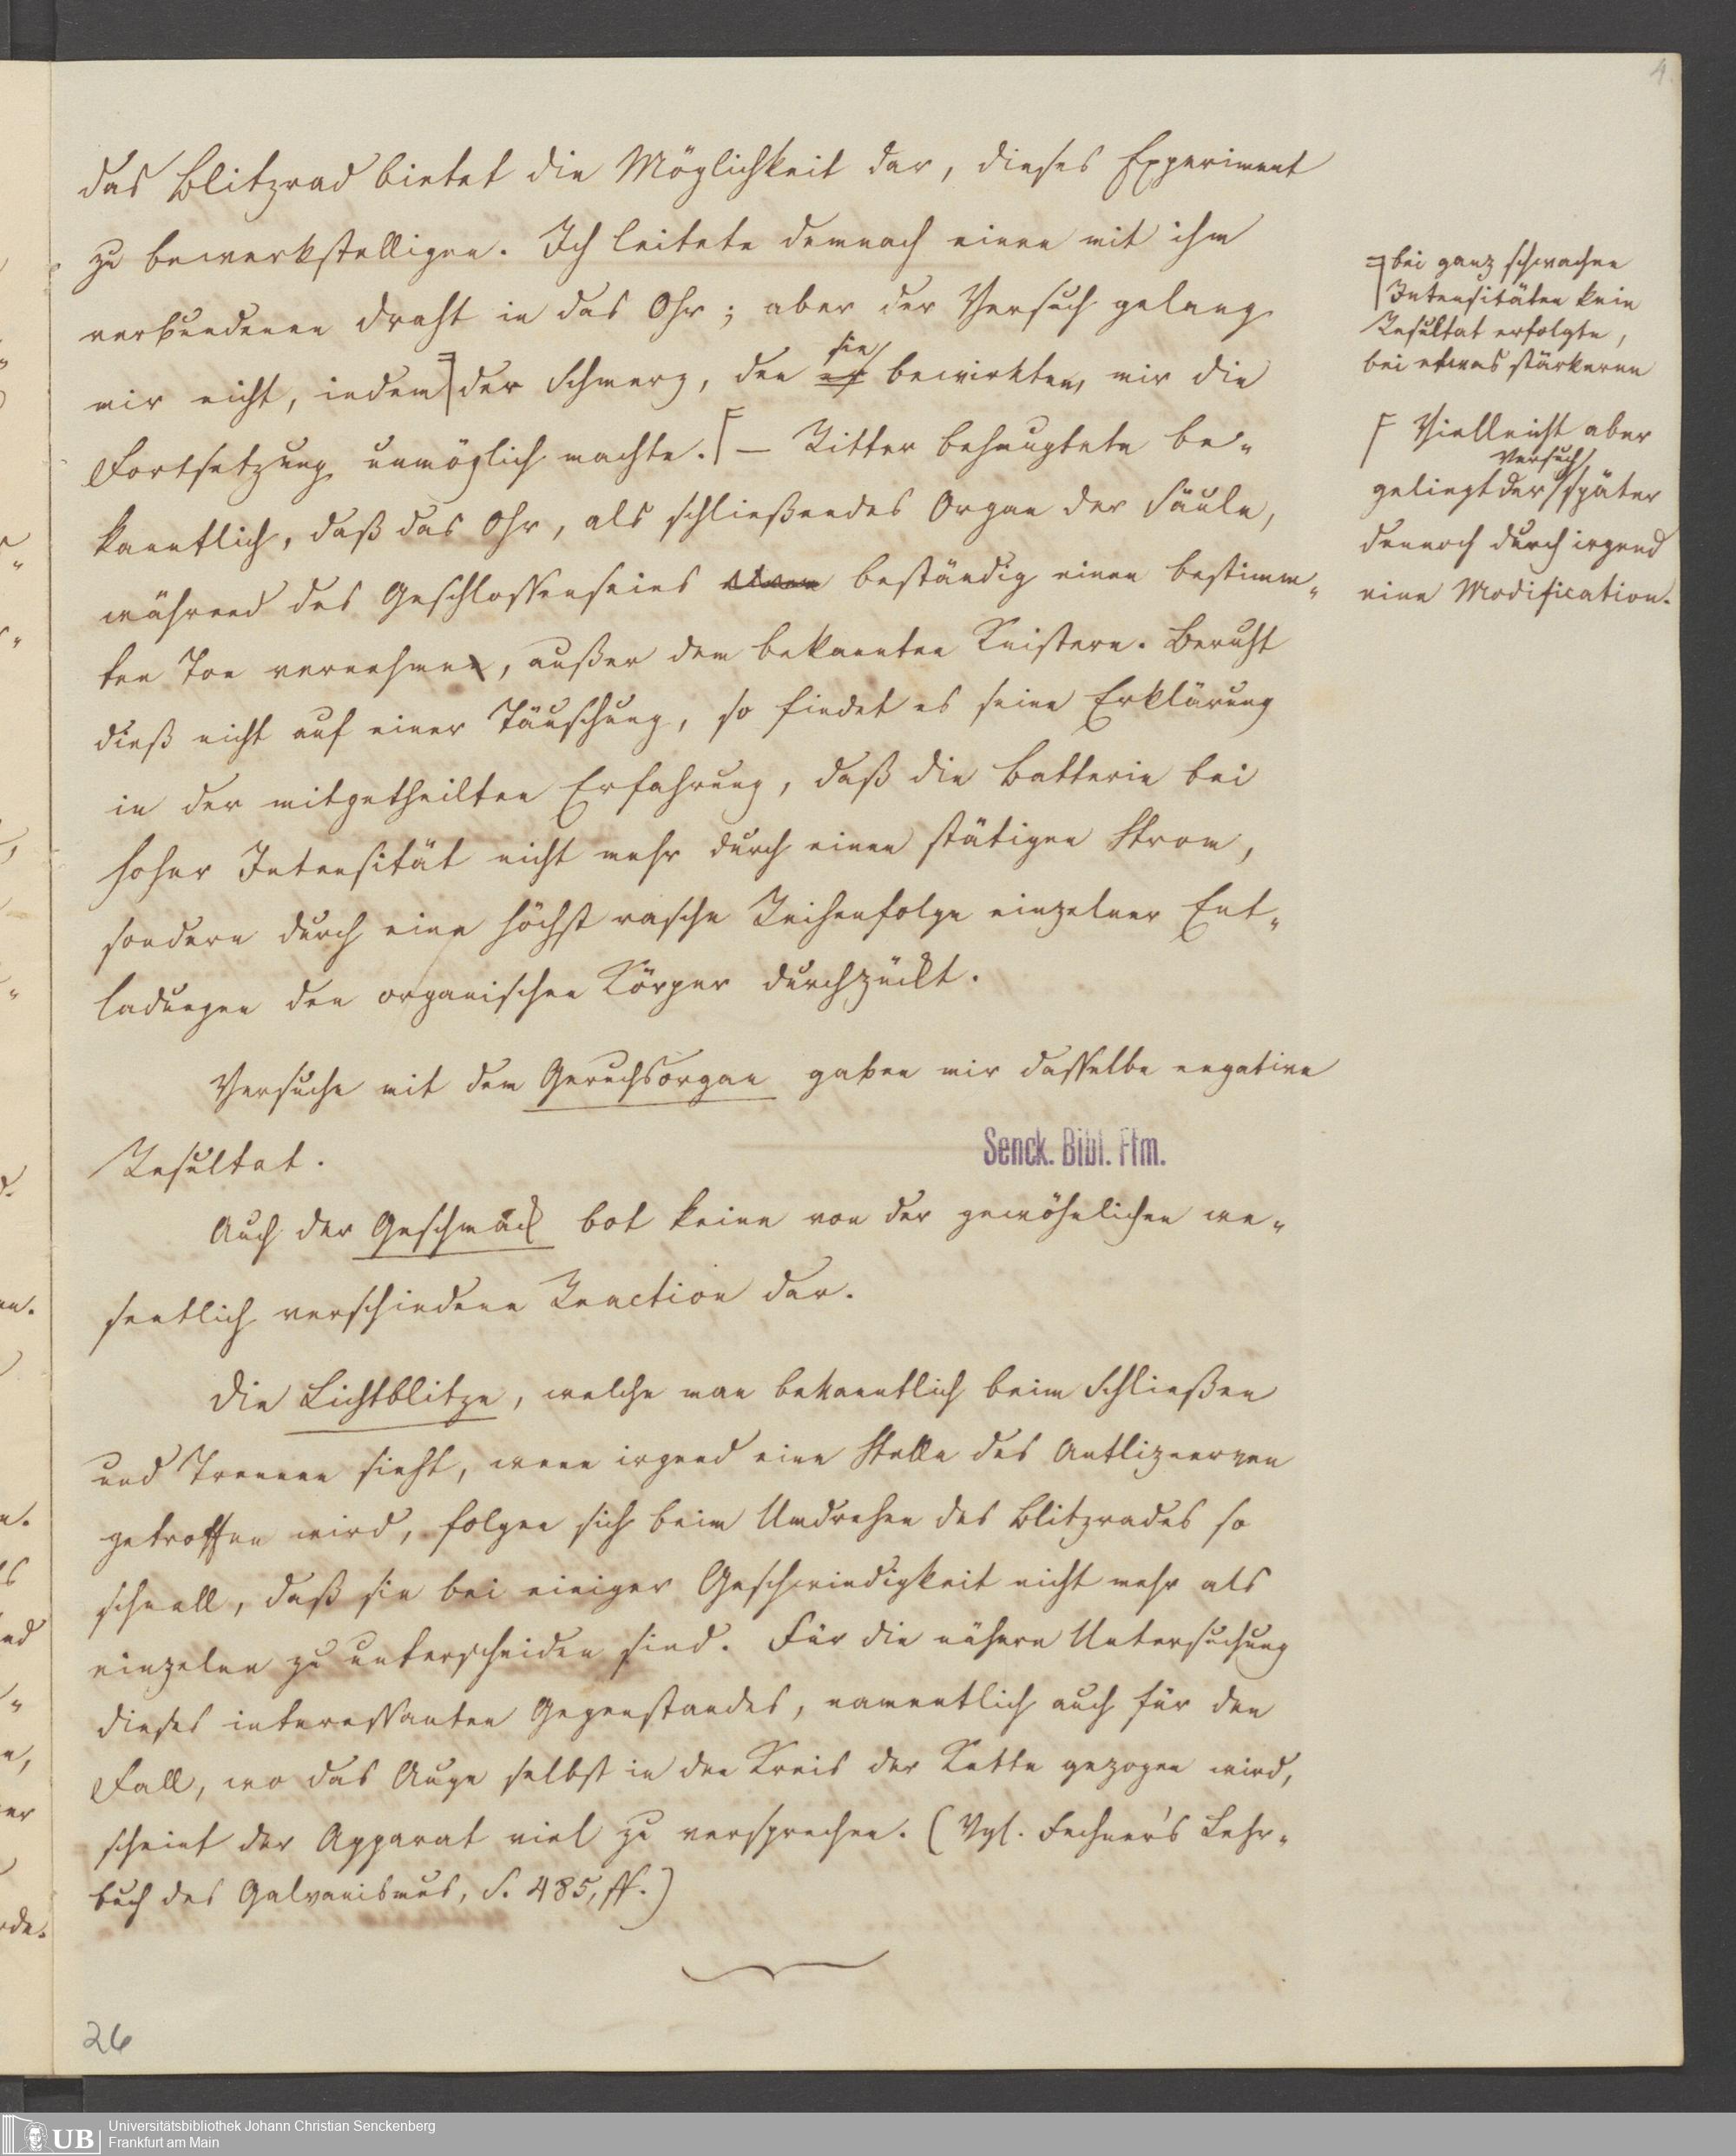 4.
das Blitzrad bietet die Möglichkeit dar, dieses Experiment
zu bewerkstelligen. Ich leitete demnach einen mit ihm
verbundenen Draht in das Ohr; aber der Versuch gelang
mir nicht, indem der Schmerz, den er sie bewirkten, mir die
Fortsetzung unmöglich machte. — Ritter behauptete be-
kanntlich, daß das Ohr, als schließendes Organ der Säule,
während des Geschlossenseins beständig einen bestimm-
ten Ton vernehme, außer dem bekannten Knistern. Beruht
dieß nicht auf einer Täuschung, so findet es seine Erklärung
in der mitgetheilten Erfahrung, daß die Batterie bei
hoher Intensität nicht mehr durch einen stätigen Strom,
sondern durch eine höchst rasche Reihenfolge einzelner Ent-
ladungen den organischen Körper durchzückt.
Versuche mit dem Geruchsorgan gaben mir dasselbe negative
Resultat.
Auch der Geschmack bot keine von der gewöhnlichen we-
sentlich verschiedene Reaction dar.
Die Lichtblitze, welche man bekanntlich beim Schließen
und Trennen sieht, wenn irgend eine Stelle des Antliznerven
getroffen wird, folgen sich beim Umdrehen des Blitzrades so
schnell, daß sie bei einiger Geschwindigkeit nicht mehr als
einzelne zu unterscheiden sind. Für die nähere Untersuchung
dieses interessanten Gegenstandes, namentlich auch für den
Fall, wo das Auge selbst in den Kreis der Kette gezogen wird,
scheint der Apparat viel zu versprechen. (Vgl. Fechner's Lehr-
buch des Galvanismus, S. 485, ff.)
bei ganz schwachen
Intensitäten kein
Resultat erfolgte,
bei etwas stärkeren
Vielleicht aber
gelingt der Versuch später
dennoch durch irgend
eine Modification.
Senck. Bibl. Ffm.
26
UB
Universitätsbibliothek Johann Christian Senckenberg
Frankfurt am Main